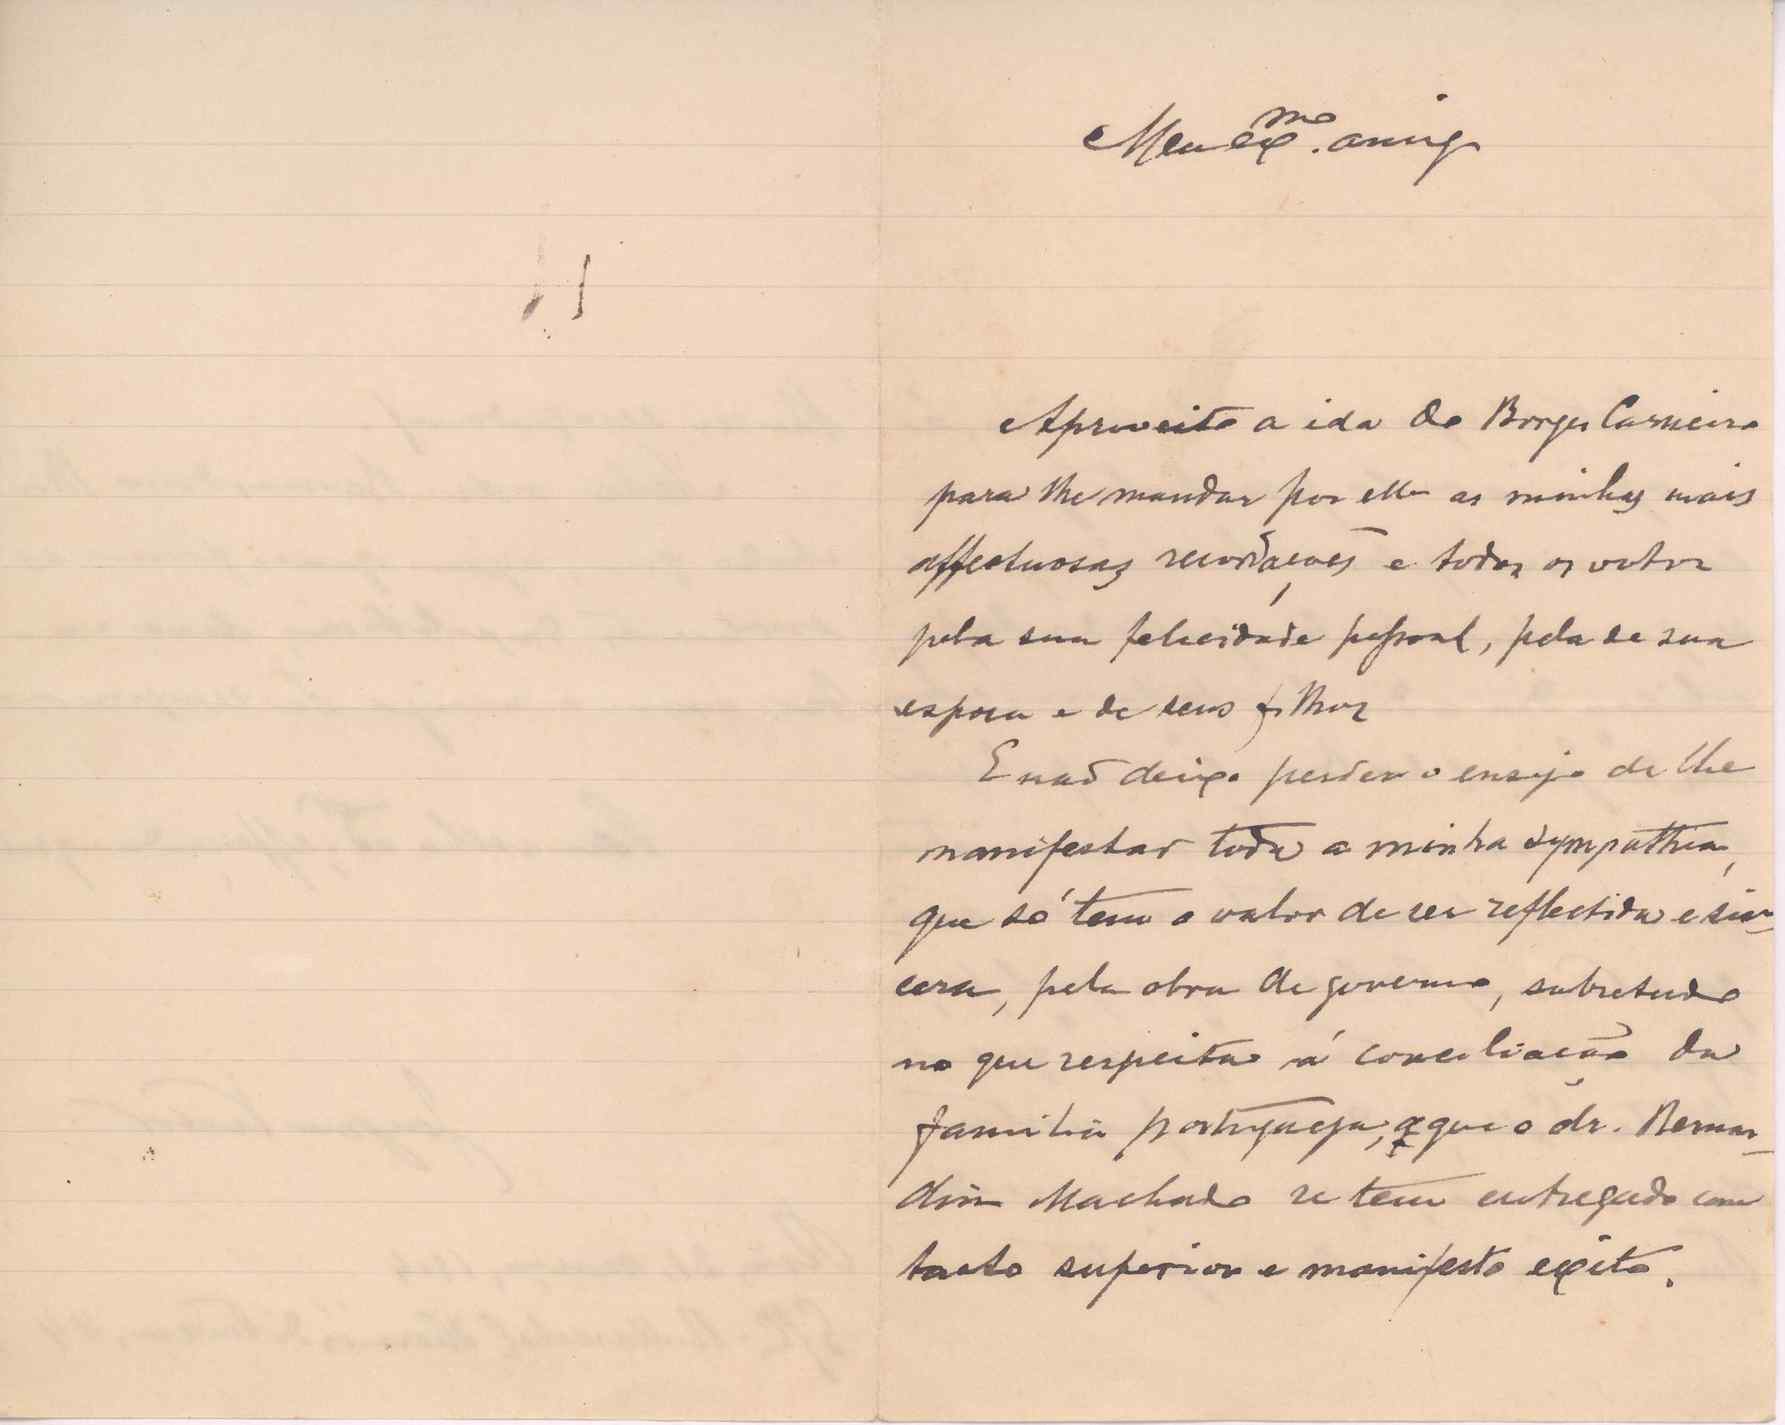 Meu ex.mo amigo
Aproveito a ida do Borges Carneiro
para lhe mandar por elle as minhas mais
affectuosas recordações e todos os votos
pela sua felicidade pessoal, pela de sua
esposa e de seus filhos
E não deixo perder o ensejo de lhe
manifestar toda a minha sympathia,
que só tem o valor de ser reflectida e sin-
cera, pela obra de governo, sobretudo
no que respeita á conciliação da
familia portugueza, a que o dr. Bernar-
dino Machado se tem entregado com
tacto superior e manifesto exito.